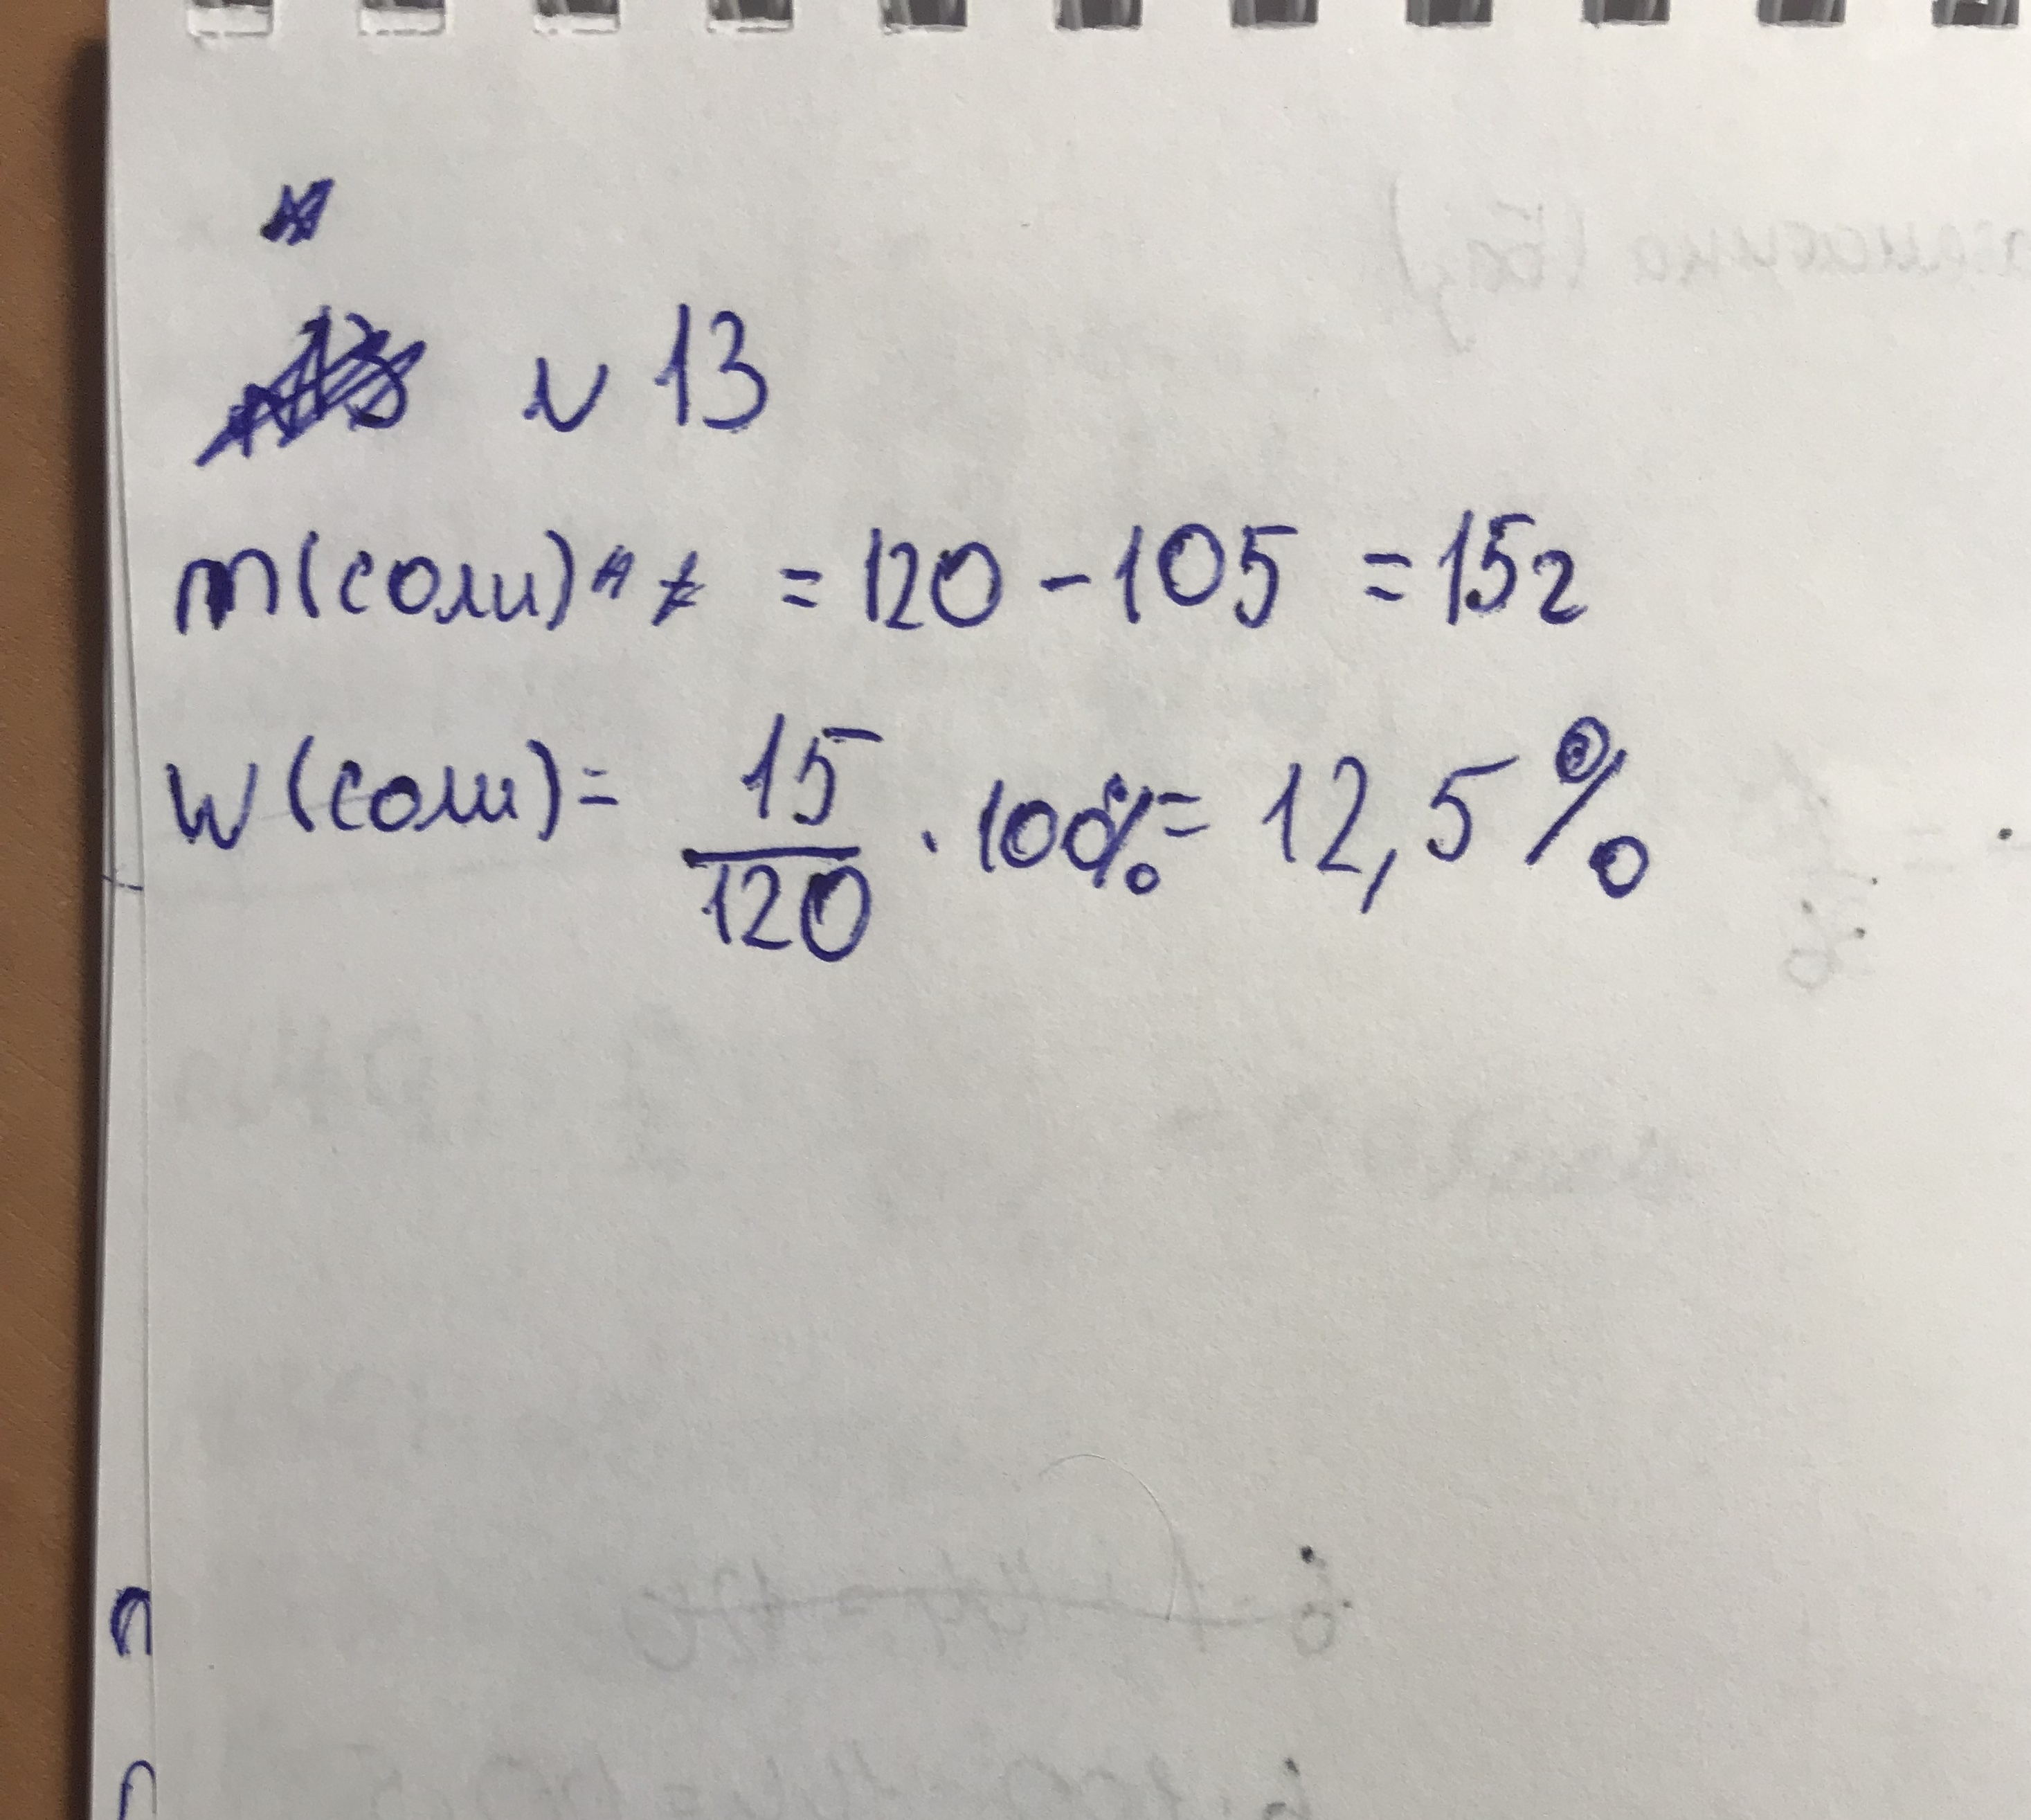 № 13
m(соли) = 120 - 105 = 15г
W(соли) = 15/120 · 100% = 12,5%